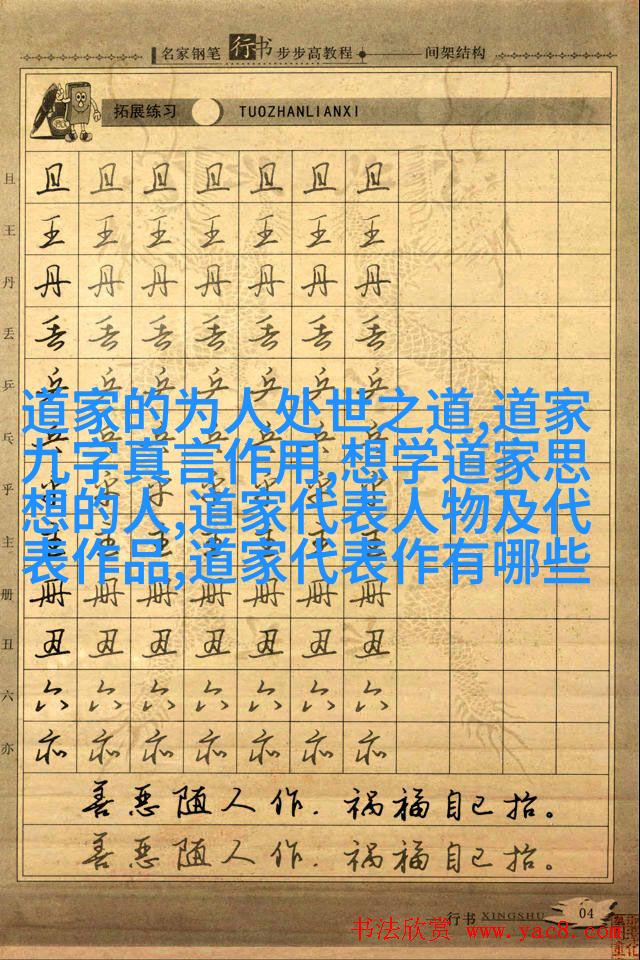 名家钢笔行书步步高教程 间架结构
拓展练习 TUOZHANLIANXI
且 且 且 且 且 且 且 且
王 王 王 王 王 王 王 王
丹 丹 丹 丹 丹 丹 丹 丹
丢 丢 丢 丢 丢 丢 丢 丢
乒 乒 乒 乒 乒 乒 乒 乒
道家的为人处世之道,道家
九字真言作用,想学道家思
想的人,道家代表人物及代
表作品,道家代表作有哪些
乓
乎
主
册 册 册 册 册 册 册 册
丑 丑 丑 丑 丑 丑 丑 丑
六 六 六 六 六 六 六 六
亦 亦 亦 亦 亦 亦 亦 亦
善恶随人作.祸福自己招。
善恶随人作.祸福自己招。
行书 XINGSHU 04
书法欣赏 www.yac8.com